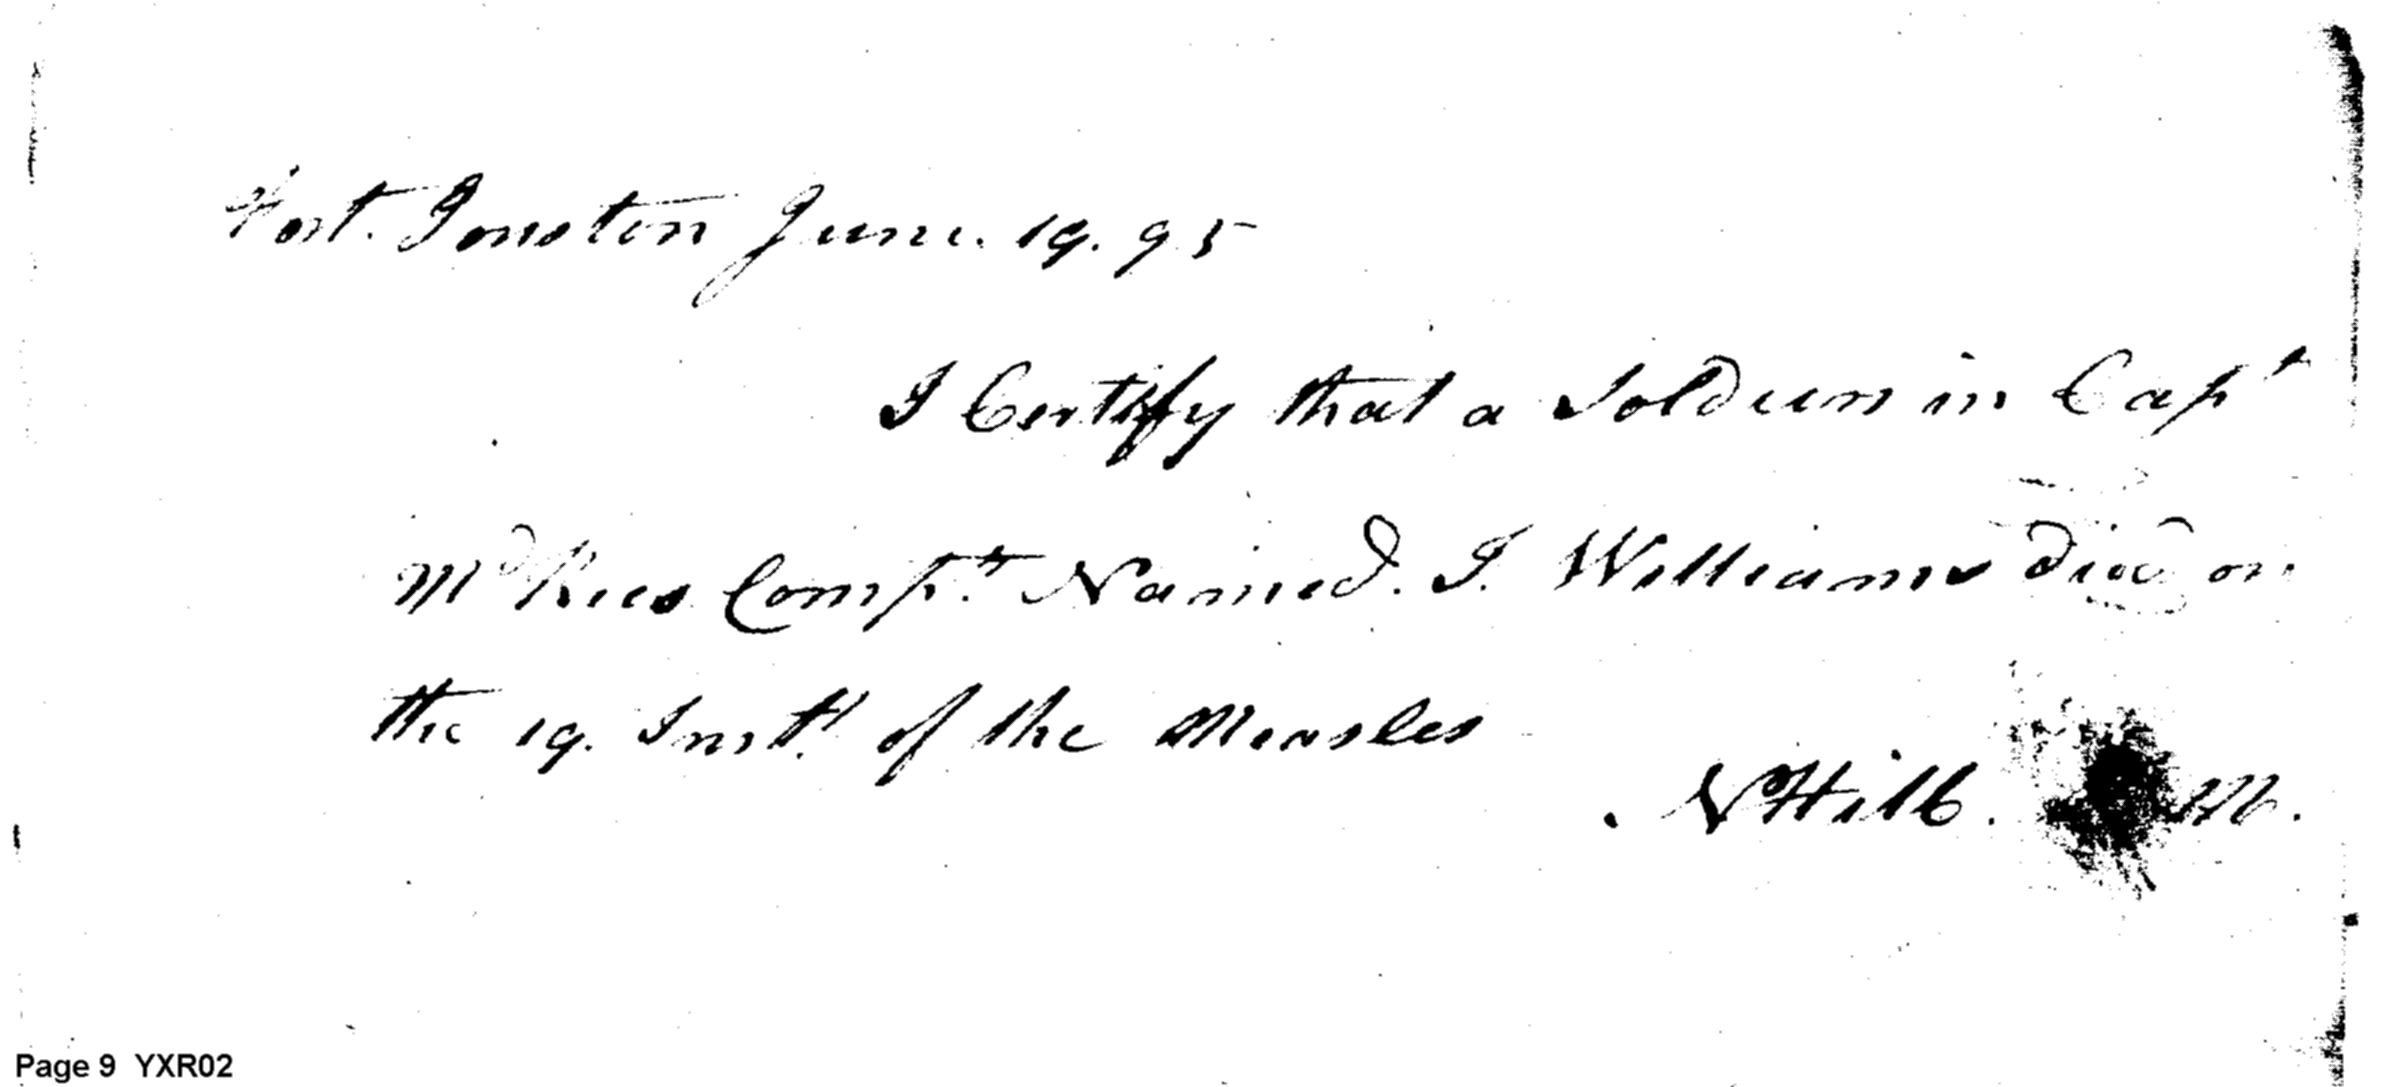 Fort. Jonston June. 19. 95
I Certify that a Soldier in Capt
Mc Rees Compt. Named. J. Williams Died on
the 19. Inst. of the Measles
N Hill. M.
Page 9 YXR02